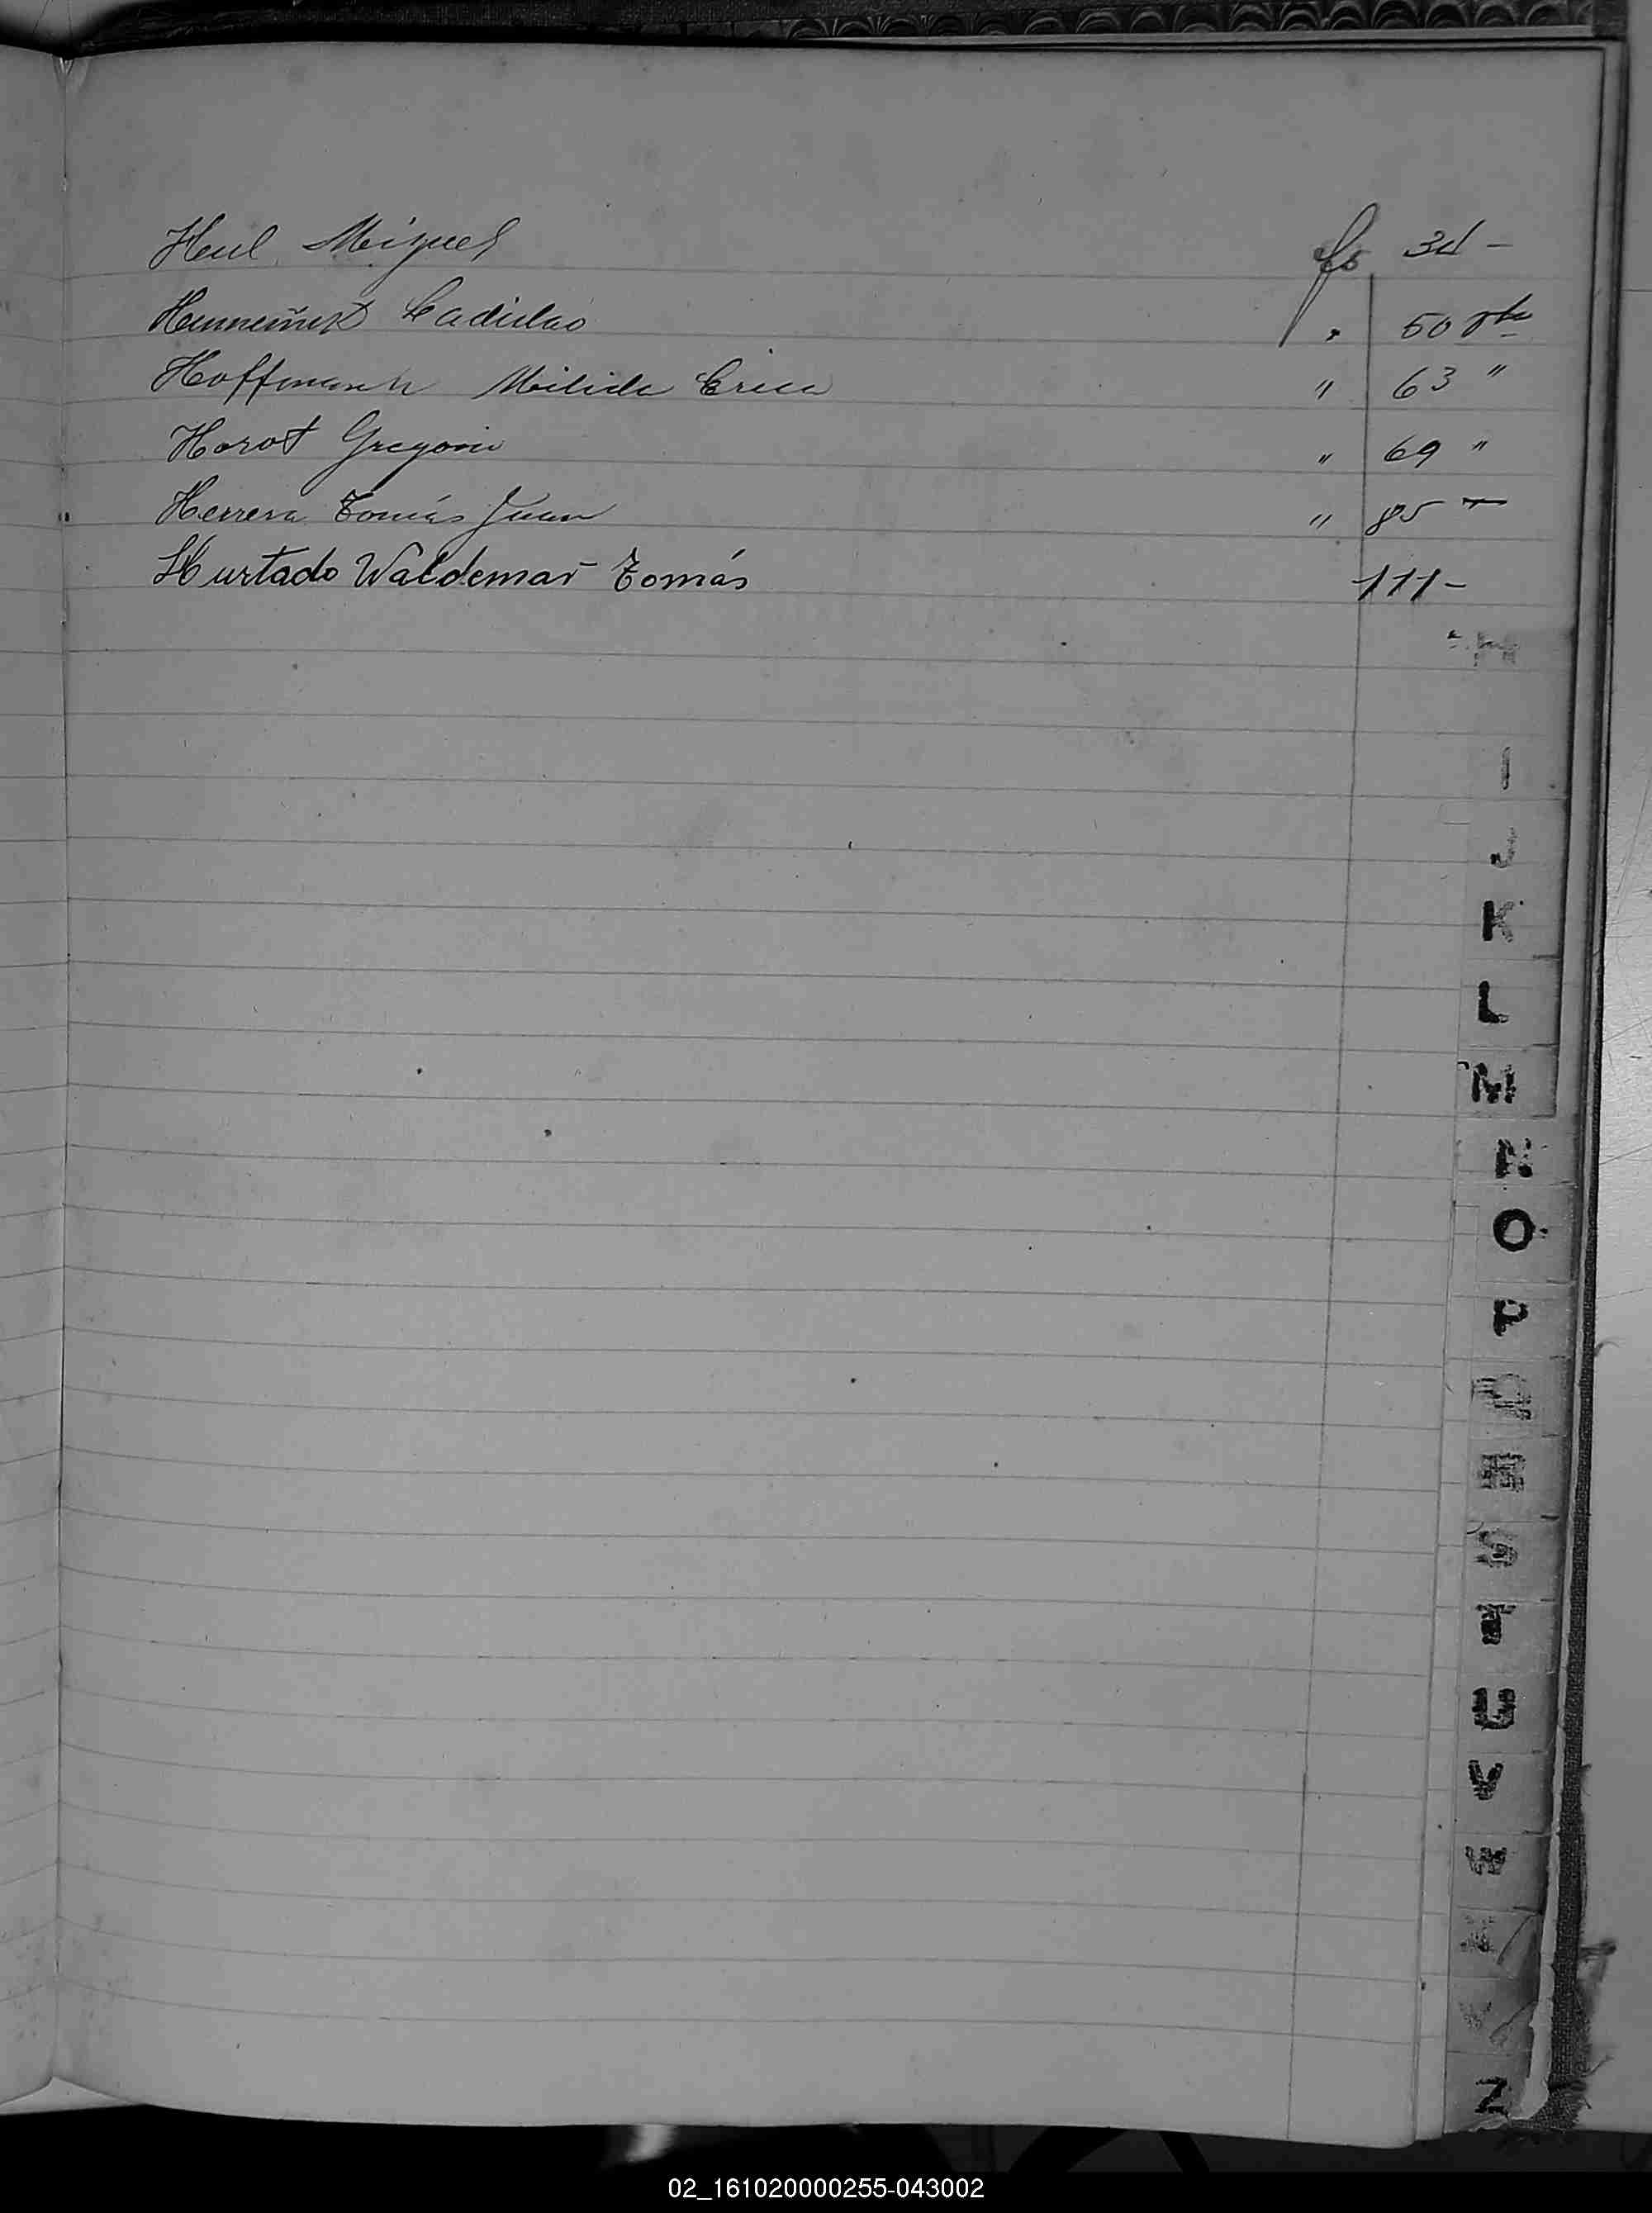 Heul Miguel fs 34 -
Ladislao " 50 vta
Hoffmann Milida Erica " 63 "
Horot Gregorio " 69 "
Herrera Tomás Juan " 85 -
Hurtado Waldemar Tomás 111-
H
I
J
K
L
M
N
O
P
Q
R
S
T
U
V
W
X
Y
Z
02_161020000255-043002